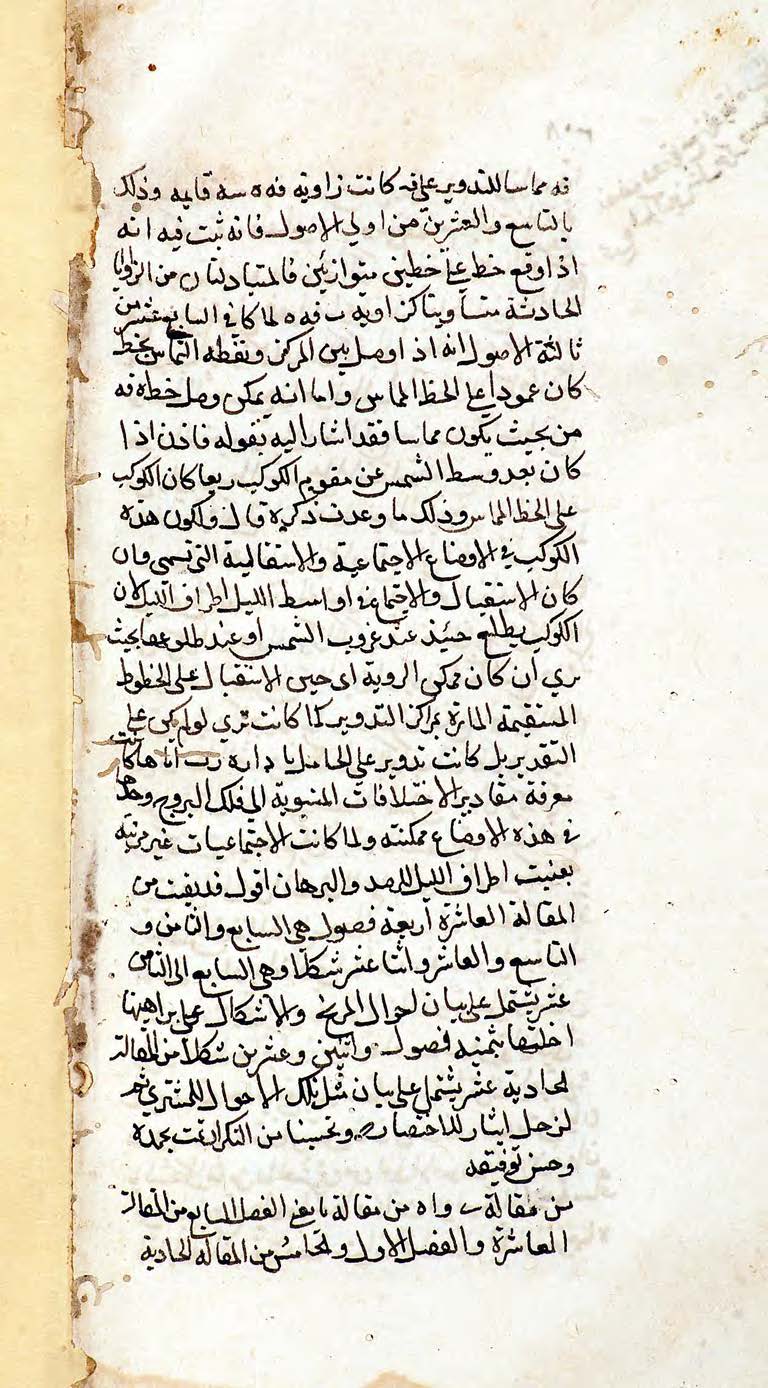 فه مماسا للتدوير على فه كانت زاوية فه ه سه قايمه وذلك
بالتاسع والعشرين من اولى الاصول فانه ثبت فيه انه
اذا وقع خط على خطين متوازيين فالمتبادلتان من الزوايا
الحادثة متساويتا كزاويه فه ه لما كا في السابع عشر من
ثالثة الاصول انه اذا وصل بين المركز ونقطه التماس بخط
كان عمودا على الخط المماس واما انه يمكن وصل خط ه فه
من بحيث يكون مماسا فقد اشار اليه بقوله فاذن اذا
كان بعد وسط الشمس عن مقوم الكوكب ربعا كان الكوكب
على الخط المماس وذلك ما وعدت ذكره قال ولكون هذه
الكوكب في الاوضاع الاجتماعية والاستقبالية التي تسمى وان
كان الاستقبال والاجتماع في اواسط الليل اطراف الليل لان
الكوكب يطلع حينئذ عند غروب الشمس او عند طلوعها بحيث
يرى ان كان ممكن الروية اى حين الاستقبال على الخطوط
المستقيمة المارة بمراكز التدوير كما كانت ترى لو لم يكن على
التقدير بل كانت تدوير على الحامل
معرفة مقادير الاختلافات المنسوبة الى فلك البروج وحدها
في هذه الاوضاع ممكنته ولما كانت الاجتماعيات غير مرئيه
بعنيت اطراف الليل للرصد والبرهان اقول قد بقيت من
المقالة العاشرة أربعة فصول هي السابع والثامن و
التاسع والعاشر واثنا عشر شكلا وهي السابع الى الثامن
عشر يشتمل على بيان احوال المريخ والاشكال على براهينها
اخليتها بثمنيه فصول واثنين وعشرين شكلا من المقالة
الحادية عشر يشتمل على بيان مثل تلك الاحوال للمشتري ثم
لزحل ايثار للاختصار وتحسينا من التكرار تمت بحمده
وحسن توفيقه
من مقالة ى واه من مقالة يا يعنى الفصل السابع من المقالة
العاشرة والفصل الاول والخامس من المقاله الحادية